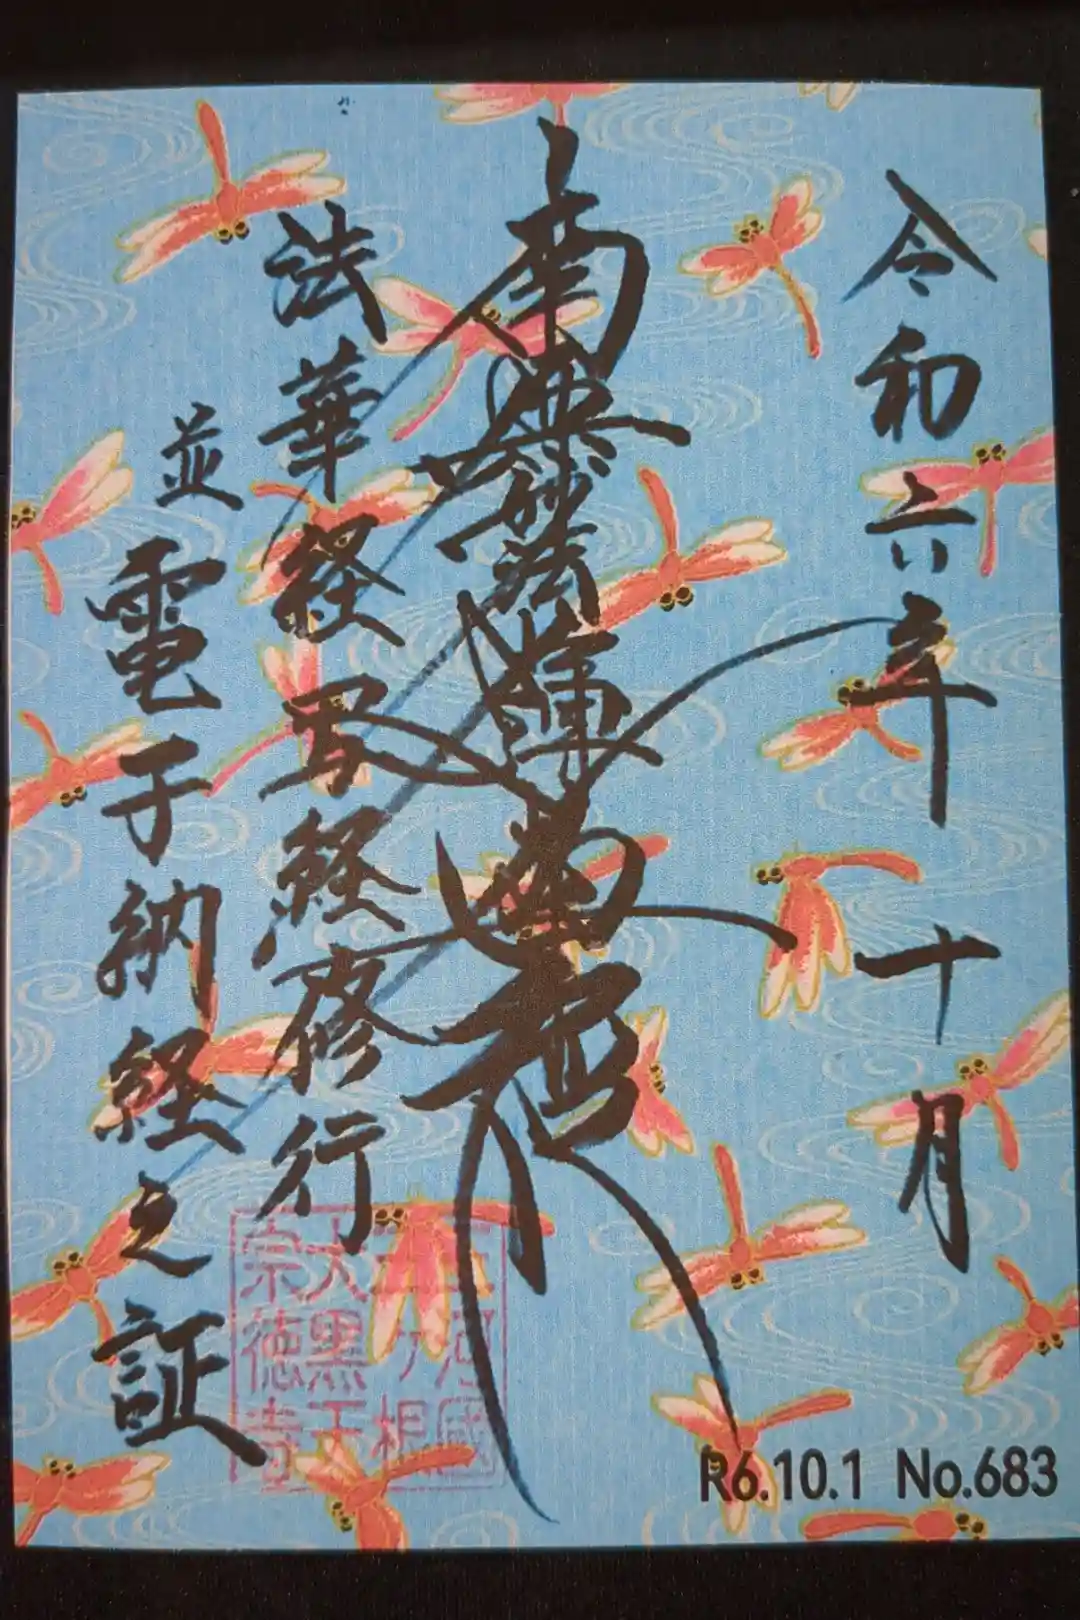 令和六年十月
南無妙法蓮華経
法華経写経修行
並電子納経之証
三河國
三ヶ根
大黒天
宗徳寺
R6.10.1 No.683